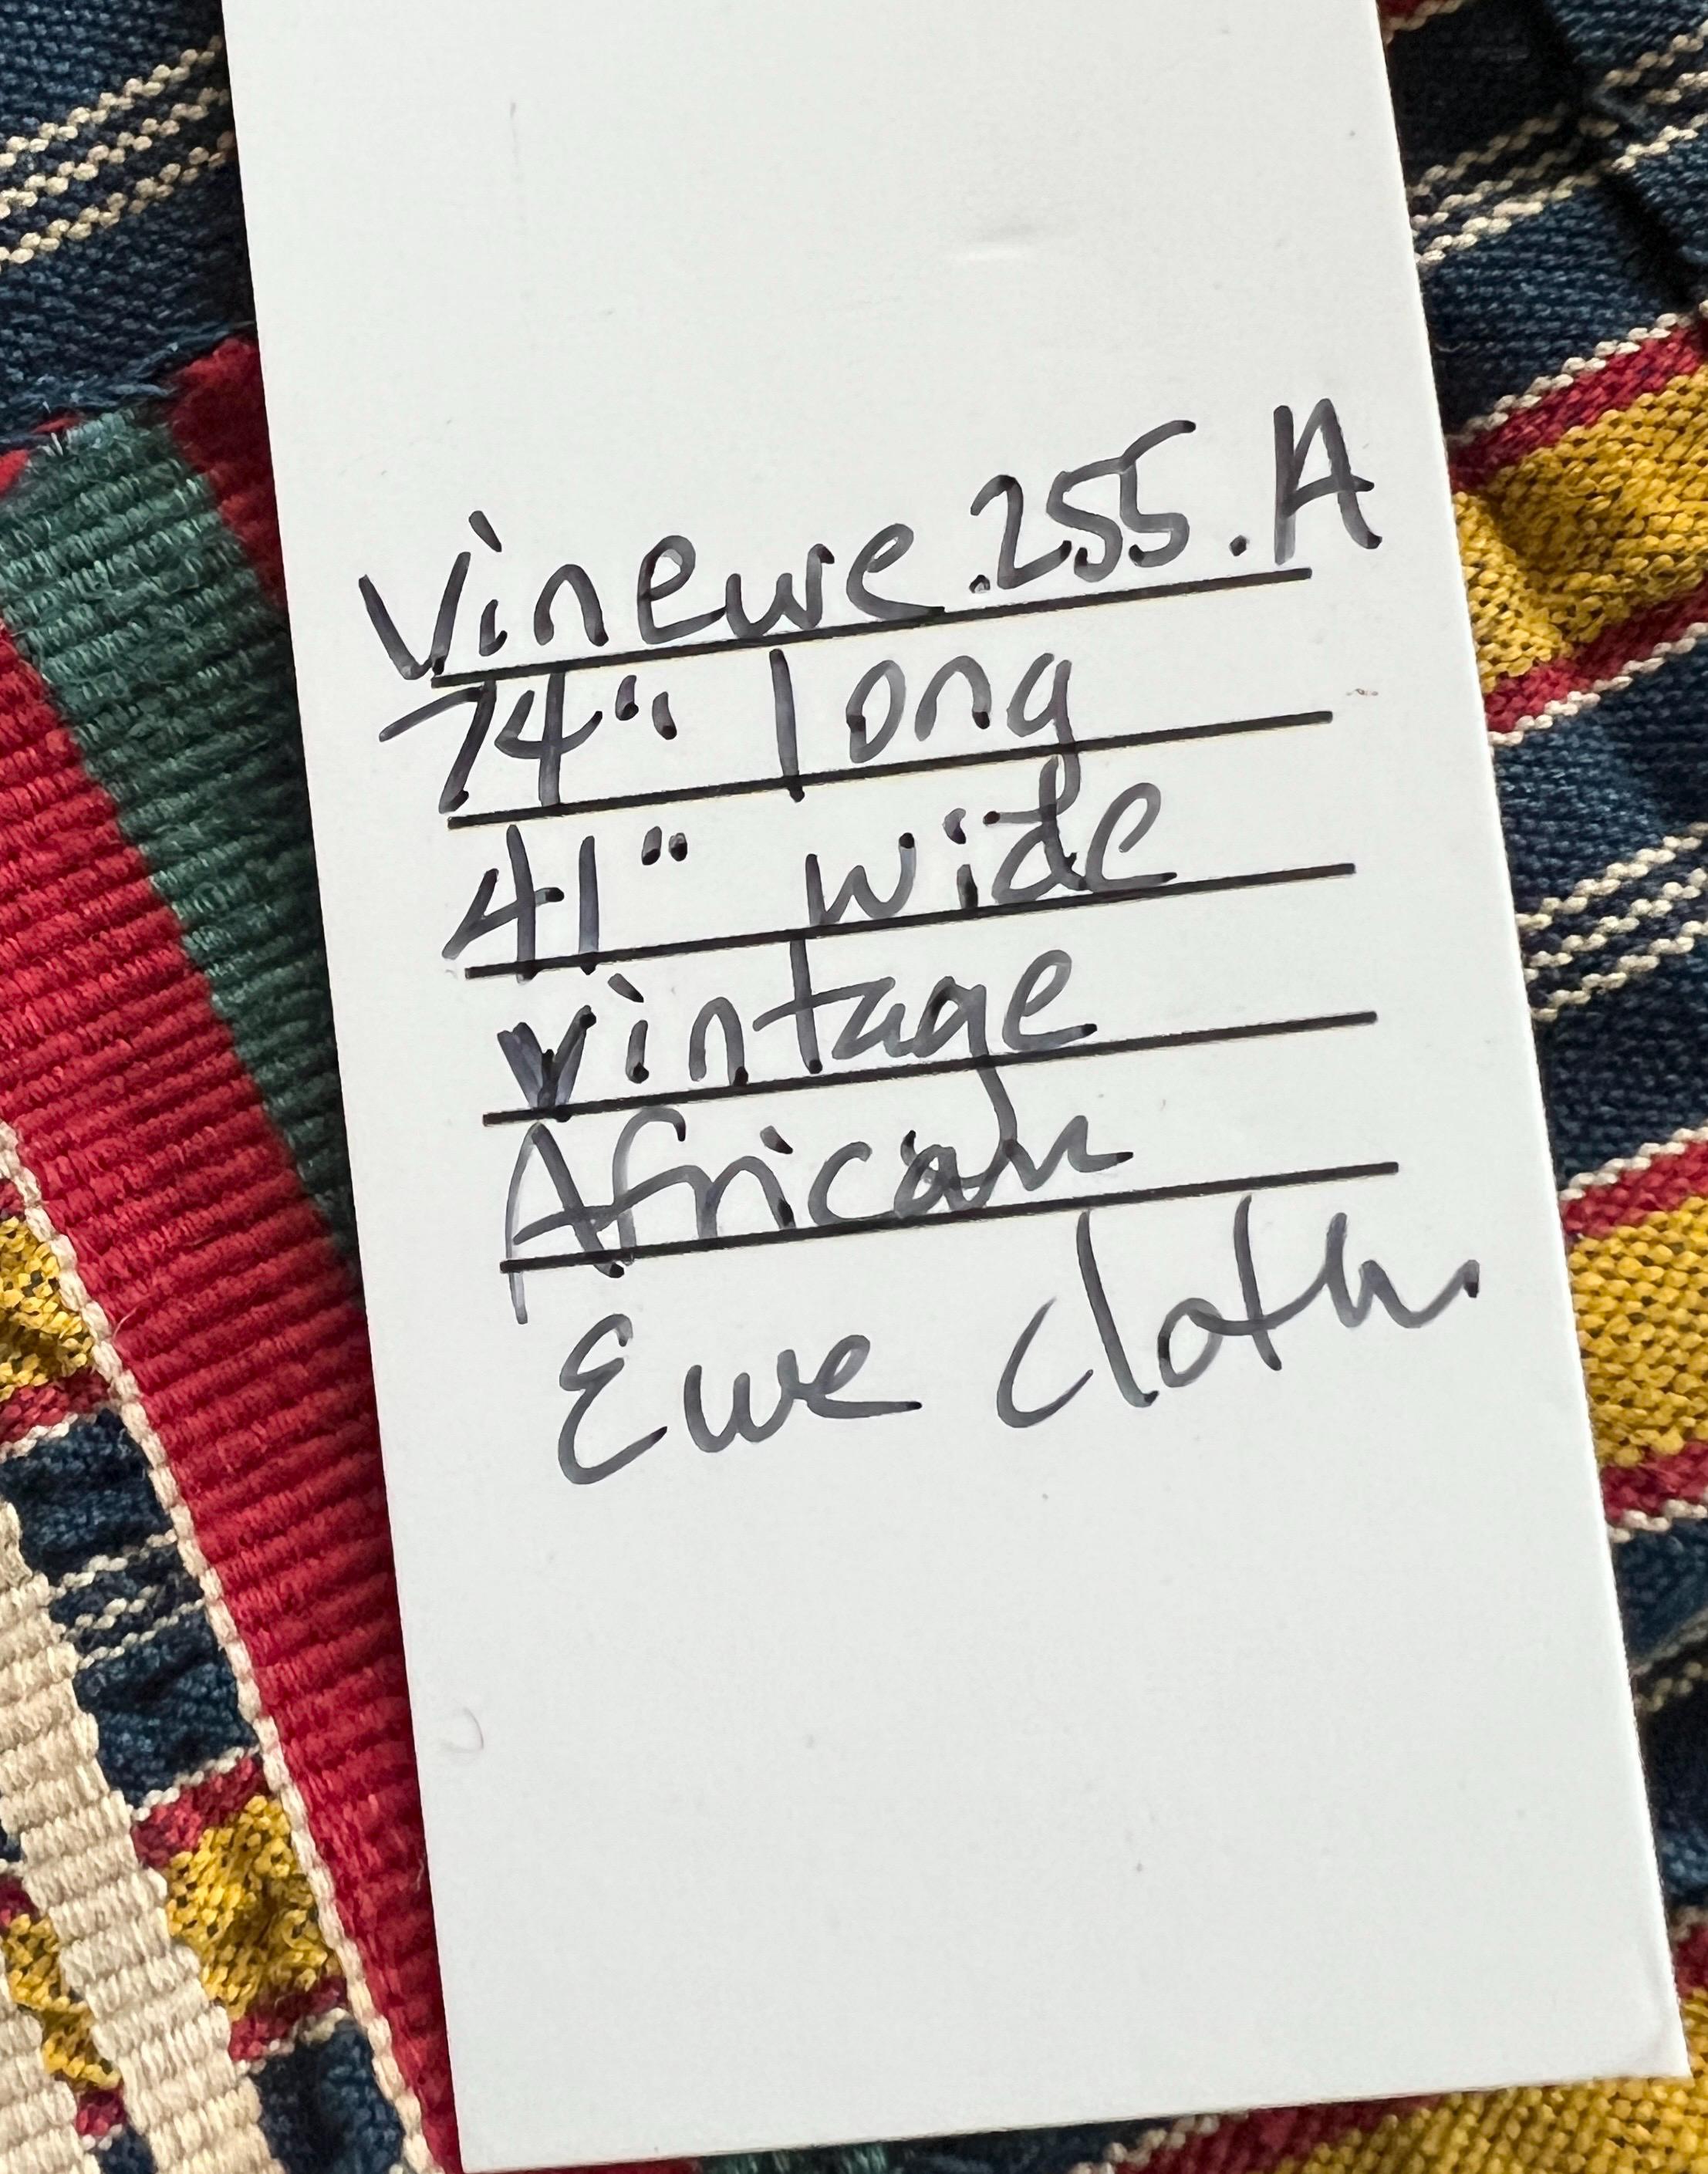 Vinewe.255.A
74" long
41" wide
vintage
African
Ewe cloth.